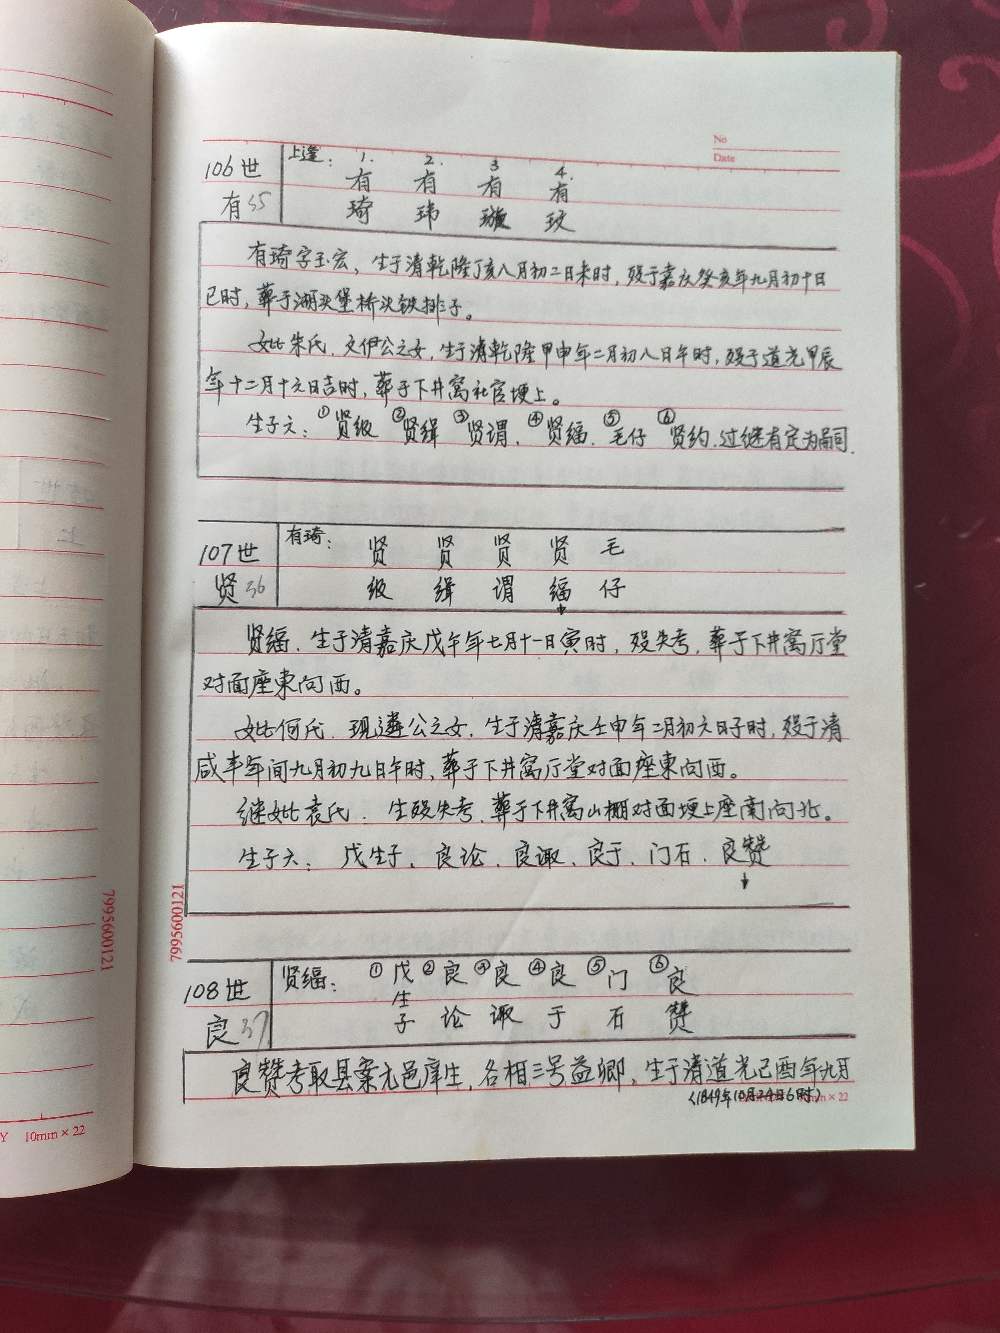 No
Date
106世
有35
上逢：
1. 2. 3 4.
有 有 有 有
琦 玮 璇 玟
有琦字玉宏，生于清乾隆丁亥八月初二日未时，殁于嘉庆癸亥年九月初十日
巳时，葬于湖决堡桥决铁排子。
妣朱氏，文伊公之女，生于清乾隆甲申年二月初八日午时，殁于道光甲辰
年十二月十六日吉时，葬于下井窝社官埂上。
生子六：①贤级 ②贤缉 ③贤谓，④贤缊，⑤毛仔 ⑥贤约，过继有定为嗣司.
107世
贤36
有琦：
贤 贤 贤 贤 毛
级 缉 谓 缊 仔
贤缊，生于清嘉庆戊午年七月十一日寅时，殁失考，葬于下井窝厅堂
对面座東向西。
妣何氏，现遴公之女，生于清嘉庆壬申年二月初六日子时，殁于清
咸丰年间九月初九日午时，葬于下井窝厅堂对面座東向西。
继妣袁氏，生殁失考，葬于下井窝山棚对面埂上座南向北。
生子六：戊生子，良论，良諏，良于，门石，良赞
108世
良37
贤缊：
①戊 ②良 ③良 ④良 ⑤门 ⑥良
生子 论 諏 于 石 赞
良赞考取县案尤邑庠生，名相三号益卿，生于清道光己酉年九月
(1849年10月24日6时)
7995600121
7995600121
Y 10mm × 22
mm × 22